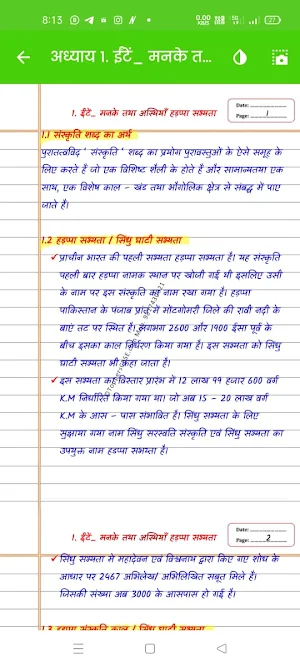 8:13
0.00 KB/S
27
अध्याय 1. ईंटें_ मनके त...
Date:
Page: 1
1. ईंटें_ मनके तथा अस्थियाँ हडप्पा सभ्यता
1.1 संस्कृति शब्द का अर्थ
पुरातत्वविद् ' संस्कृति ' शब्द का प्रयोग पुरावस्तुओं के ऐसे समूह के
लिए करते हैं जो एक विशिष्ट शैली के होते हैं और सामान्यतया एक
साथ, एक विशेष काल - खंड तथा भौगोलिक क्षेत्र से संबद्ध में पाए
जाते हैं।
1.2 हडप्पा सभ्यता / सिंधु घाटी सभ्यता
✓ प्राचीन भारत की पहली सभ्यता हडप्पा सभ्यता है। यह संस्कृति
पहली बार हडप्पा नामक स्थान पर खोजी गई थी इसलिए उसी
के नाम पर इस संस्कृति का नाम रखा गया है। हडप्पा
पाकिस्तान के पंजाब प्रांत में मोंटगोमरी जिले की रावी नदी के
बाएं तट पर स्थित है। लगभग 2600 और 1900 ईसा पूर्व के
बीच इसका काल निर्धारण किया गया है। इस सभ्यता को सिंधु
घाटी सभ्यता भी कहा जाता है।
✓ इस सभ्यता का विस्तार प्रारंभ में 12 लाख 99 हजार 600 वर्ग
K.M निर्धारित किया गया था। जो अब 15 - 20 लाख वर्ग
K.M के आस - पास संभावित है। सिंधु सभ्यता के लिए
सुझाया गया नाम सिंधु सरस्वति संस्कृति एवं सिंधु सभ्यता का
उपयुक्त नाम हडप्पा सभ्यता है।
Date:
Page: 2
1. ईंटें_ मनके तथा अस्थियाँ हडप्पा सभ्यता
✓ सिंधु सभ्यता में महादेवन एवं विश्वनाथ द्वारा किए गए शोध के
आधार पर 2467 अभिलेख/ अभिलिखित सबूत मिले है।
जिसकी संख्या अब 3000 के आसपास हो गई हैं।
1.3 हडप्पा संस्कृति काल / सिंधु घाटी सभ्यता